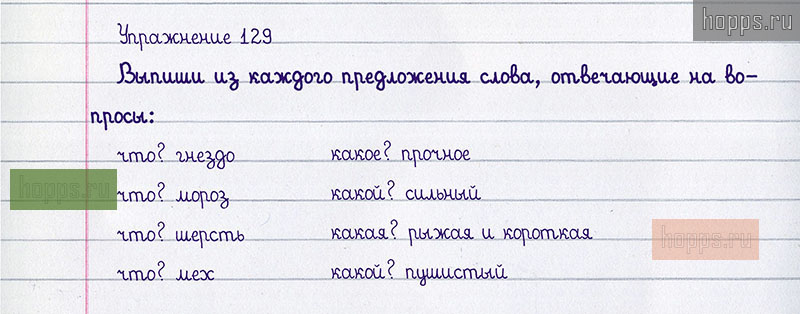 hopps.ru
Упражнение 129
Выпиши из каждого предложения слова, отвечающие на во-
просы:
что? гнездо какое? прочное
hopps.ru
что? мороз какой? сильный
что? шерсть какая? рыжая и короткая
hopps.ru
что? мех какой? пушистый